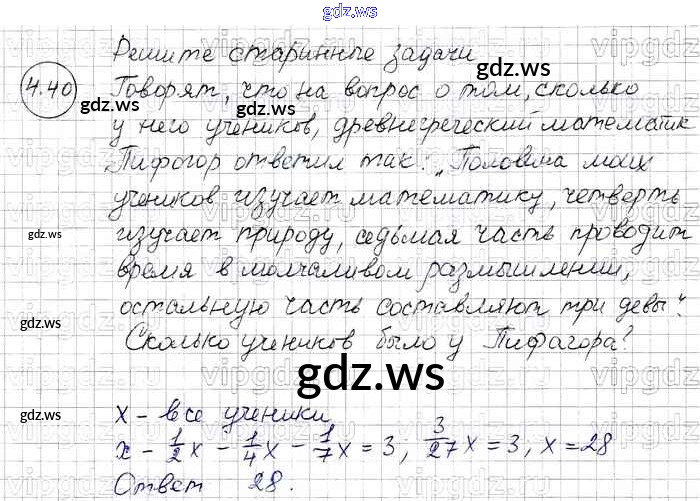 gdz.ws
4.40
Решите старинные задачи
Говорят, что на вопрос о том, сколько
у него учеников, древнегреческий математик
Пифогор ответил так: „Половина моих
учеников изучает математику, четверть
изучает природу, седьмая часть проводит
время в молчаливом размышлении,
остальную часть составляют три девы“.
Сколько учеников было у Пифагора?
gdz.ws
х - все ученики
х - 1/2 х - 1/4 х - 1/7 х = 3; 3/27 х = 3, х = 28
Ответ 28.
gdz.ws